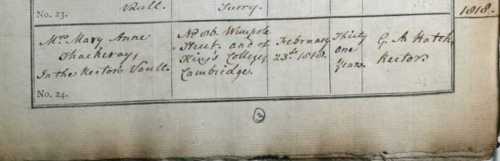 No. 23.
Vault.
Surry.
1818.
Mrs Mary Anne
Thackeray,
In the Rectors Vault.
No. 24.
No Wimpole
Street, and of
King's College,
Cambridge.
February
23rd 1818.
Thirty
one
Years.
G. A. Hatch,
Rector.